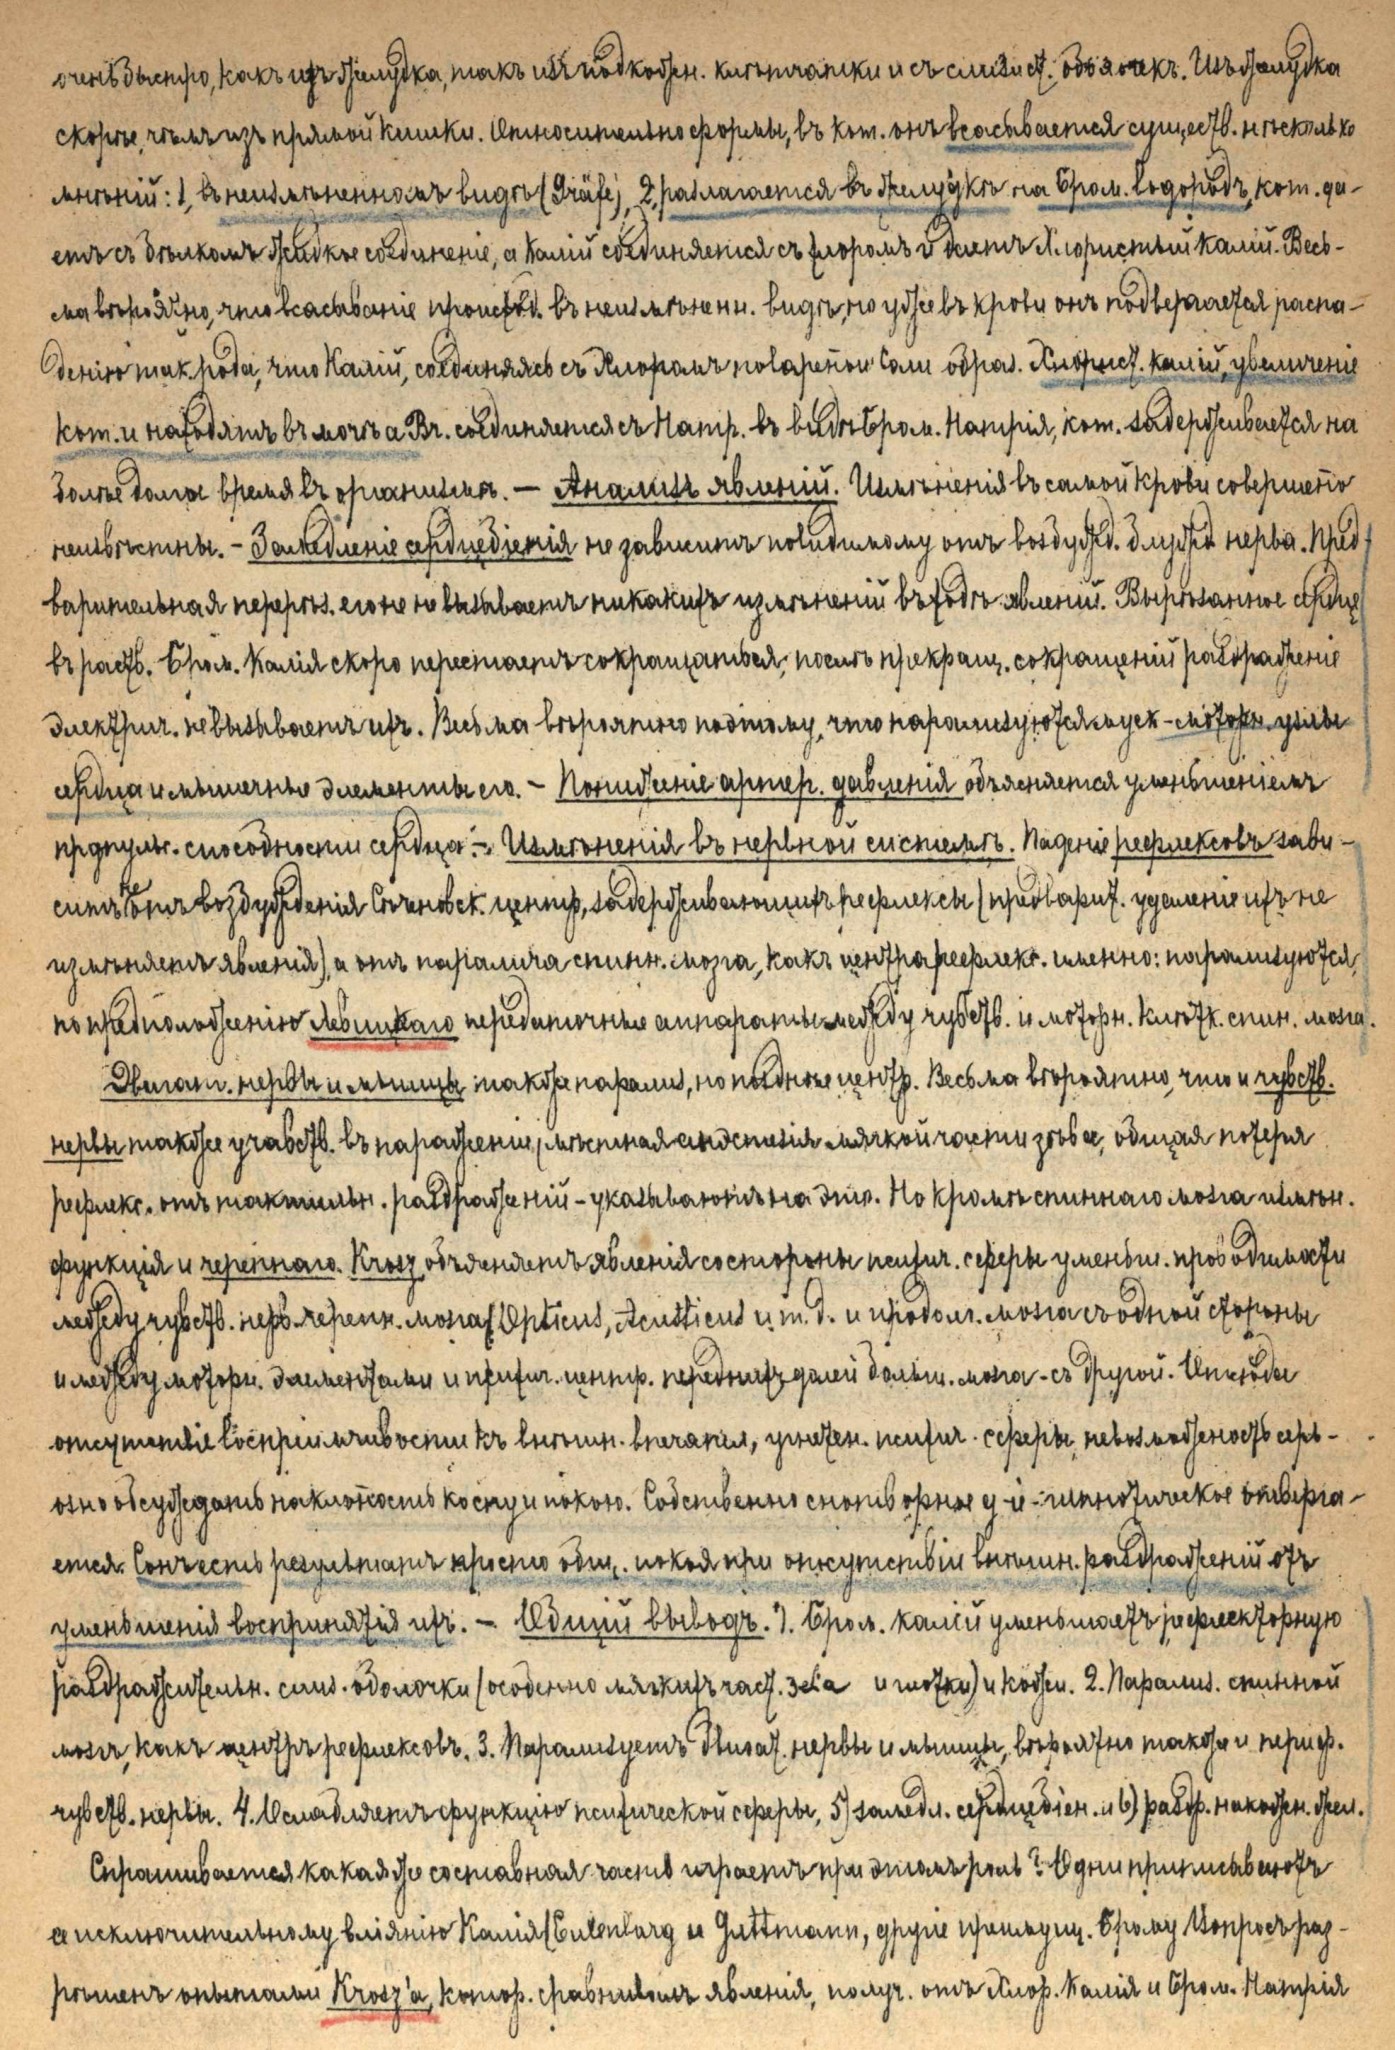 очень быстро, какъ изъ желудка, такъ изъ подкожн. клѣтчатки и съ слизист. оболочекъ. Изъ желудка
скорѣе, чѣмъ изъ прямой кишки. Относительно формы, въ кот. онъ всасывается существ. нѣсколько
мнѣній: 1, въ неизмѣненномъ видѣ (Gräfe), 2, разлагается въ желудкѣ на Бром. водородъ, кот. да-
етъ съ бѣлкомъ жидкое соединеніе, а Калій соединяется съ хлоромъ и даетъ Хлористый Калій. Весь-
ма вѣроятно, что всасываніе происход. въ неизмѣненн. видѣ, но уже въ крови онъ подвергается распа-
денію так. рода, что Калій, соединяясь съ Хлоромъ повареной соли образ. Хлорист. калій, увеличеніе
кот. и находятъ въ мочѣ а Br. соединяется съ Натр. въ видѣ Бром. Натрія, кот. задерживается на
болѣе долгое время въ организмѣ. — Анализъ явленій. Измѣненія въ самой крови совершено
неизвѣстны. - Замедленіе сердцебіенія не зависитъ повидимому отъ возбужд. блужд. нерва. Пред-
варительная перерѣз. его не вызываетъ никакихъ измѣненій въ ходѣ явленій. Вырѣзанное сердце
въ раств. Бром. Калія скоро перестаетъ сокращаться; послѣ прекращ. сокращеній раздраженіе
электрич. не вызываетъ ихъ. Весьма вѣроятно потому, что парализуются муск-моторн. узлы
сердца и мышечные элементы его. - Пониженіе артер. давленія объясняется уменьшеніемъ
пропульс. способности сердца. - Измѣненія въ нервной системѣ. Паденіе рефлексовъ зави-
ситъ не отъ возбужденія Сѣченовск. центр, задерживающихъ рефлексы (предварит. удаленіе ихъ не
измѣняетъ явленія), а отъ паралича спинн. мозга, какъ центра рефлекс. именно: парализуются,
по предположенію Левицкаго передаточные аппараты между чувств. и моторн. клѣтк. спин. мозга.
Двигат. нервы и мышцы также парализ, но позднѣе центр. Весьма вѣроятно, что и чувств.
нервы также учавств. въ пораженіи, мѣстная анэстезія мягкой части зѣва, общая потеря
рефлекс. отъ тактильн. раздраженій - указываютъ на это. Но кромѣ спиннаго мозга измѣн.
функція и черепнаго. Krosz объясняетъ явленія со стороны психич. сферы уменьш. проводимости
между чувств. нерв. черепн. мозга (Opticus, Acusticus и т. д. и продол. мозга съ одной стороны
и между моторн. элементами и психич. центр. переднихъ долей больш. мозга - съ другой. Отсюда
отсутствіе воспріимчивости къ внѣшн. впечатл, угнетен. психич. сферы, невозможность серь-
озно обсуждать наклонность ко сну и покою. Собственно снотворное д-іе - гипнотическое отверга-
ется. Сонъ есть результатъ просто общ. покоя при отсутствіи внѣшн. раздраженій отъ
уменьшенія воспринятія ихъ. — Общій выводъ. 1. Бром. калій уменьшаетъ рефлекторную
раздражительн. слиз. оболочки (особенно мягкихъ част. зева и глотки) и кожи. 2. Парализ. спинной
мозгъ, какъ центръ рефлексовъ. 3. Парализуетъ двигат. нервы и мышцы, вѣроятно также и периф.
чувств. нервы. 4. Ослабляетъ функцію психической сферы, 5) замедл. сердцебіен. и 6) раздр. накожн. жел.
Спрашивается какая же составная часть играетъ при этомъ роль? Одни приписываютъ
е исключительному вліянію Калія (Eulenburg и Guttmann, другіе преимущ. Брому Вопросъ раз-
рѣшенъ опытами Krosz'а, котор. сравнивалъ явленія, получ. отъ Хлор. Калія и Бром. Натрія